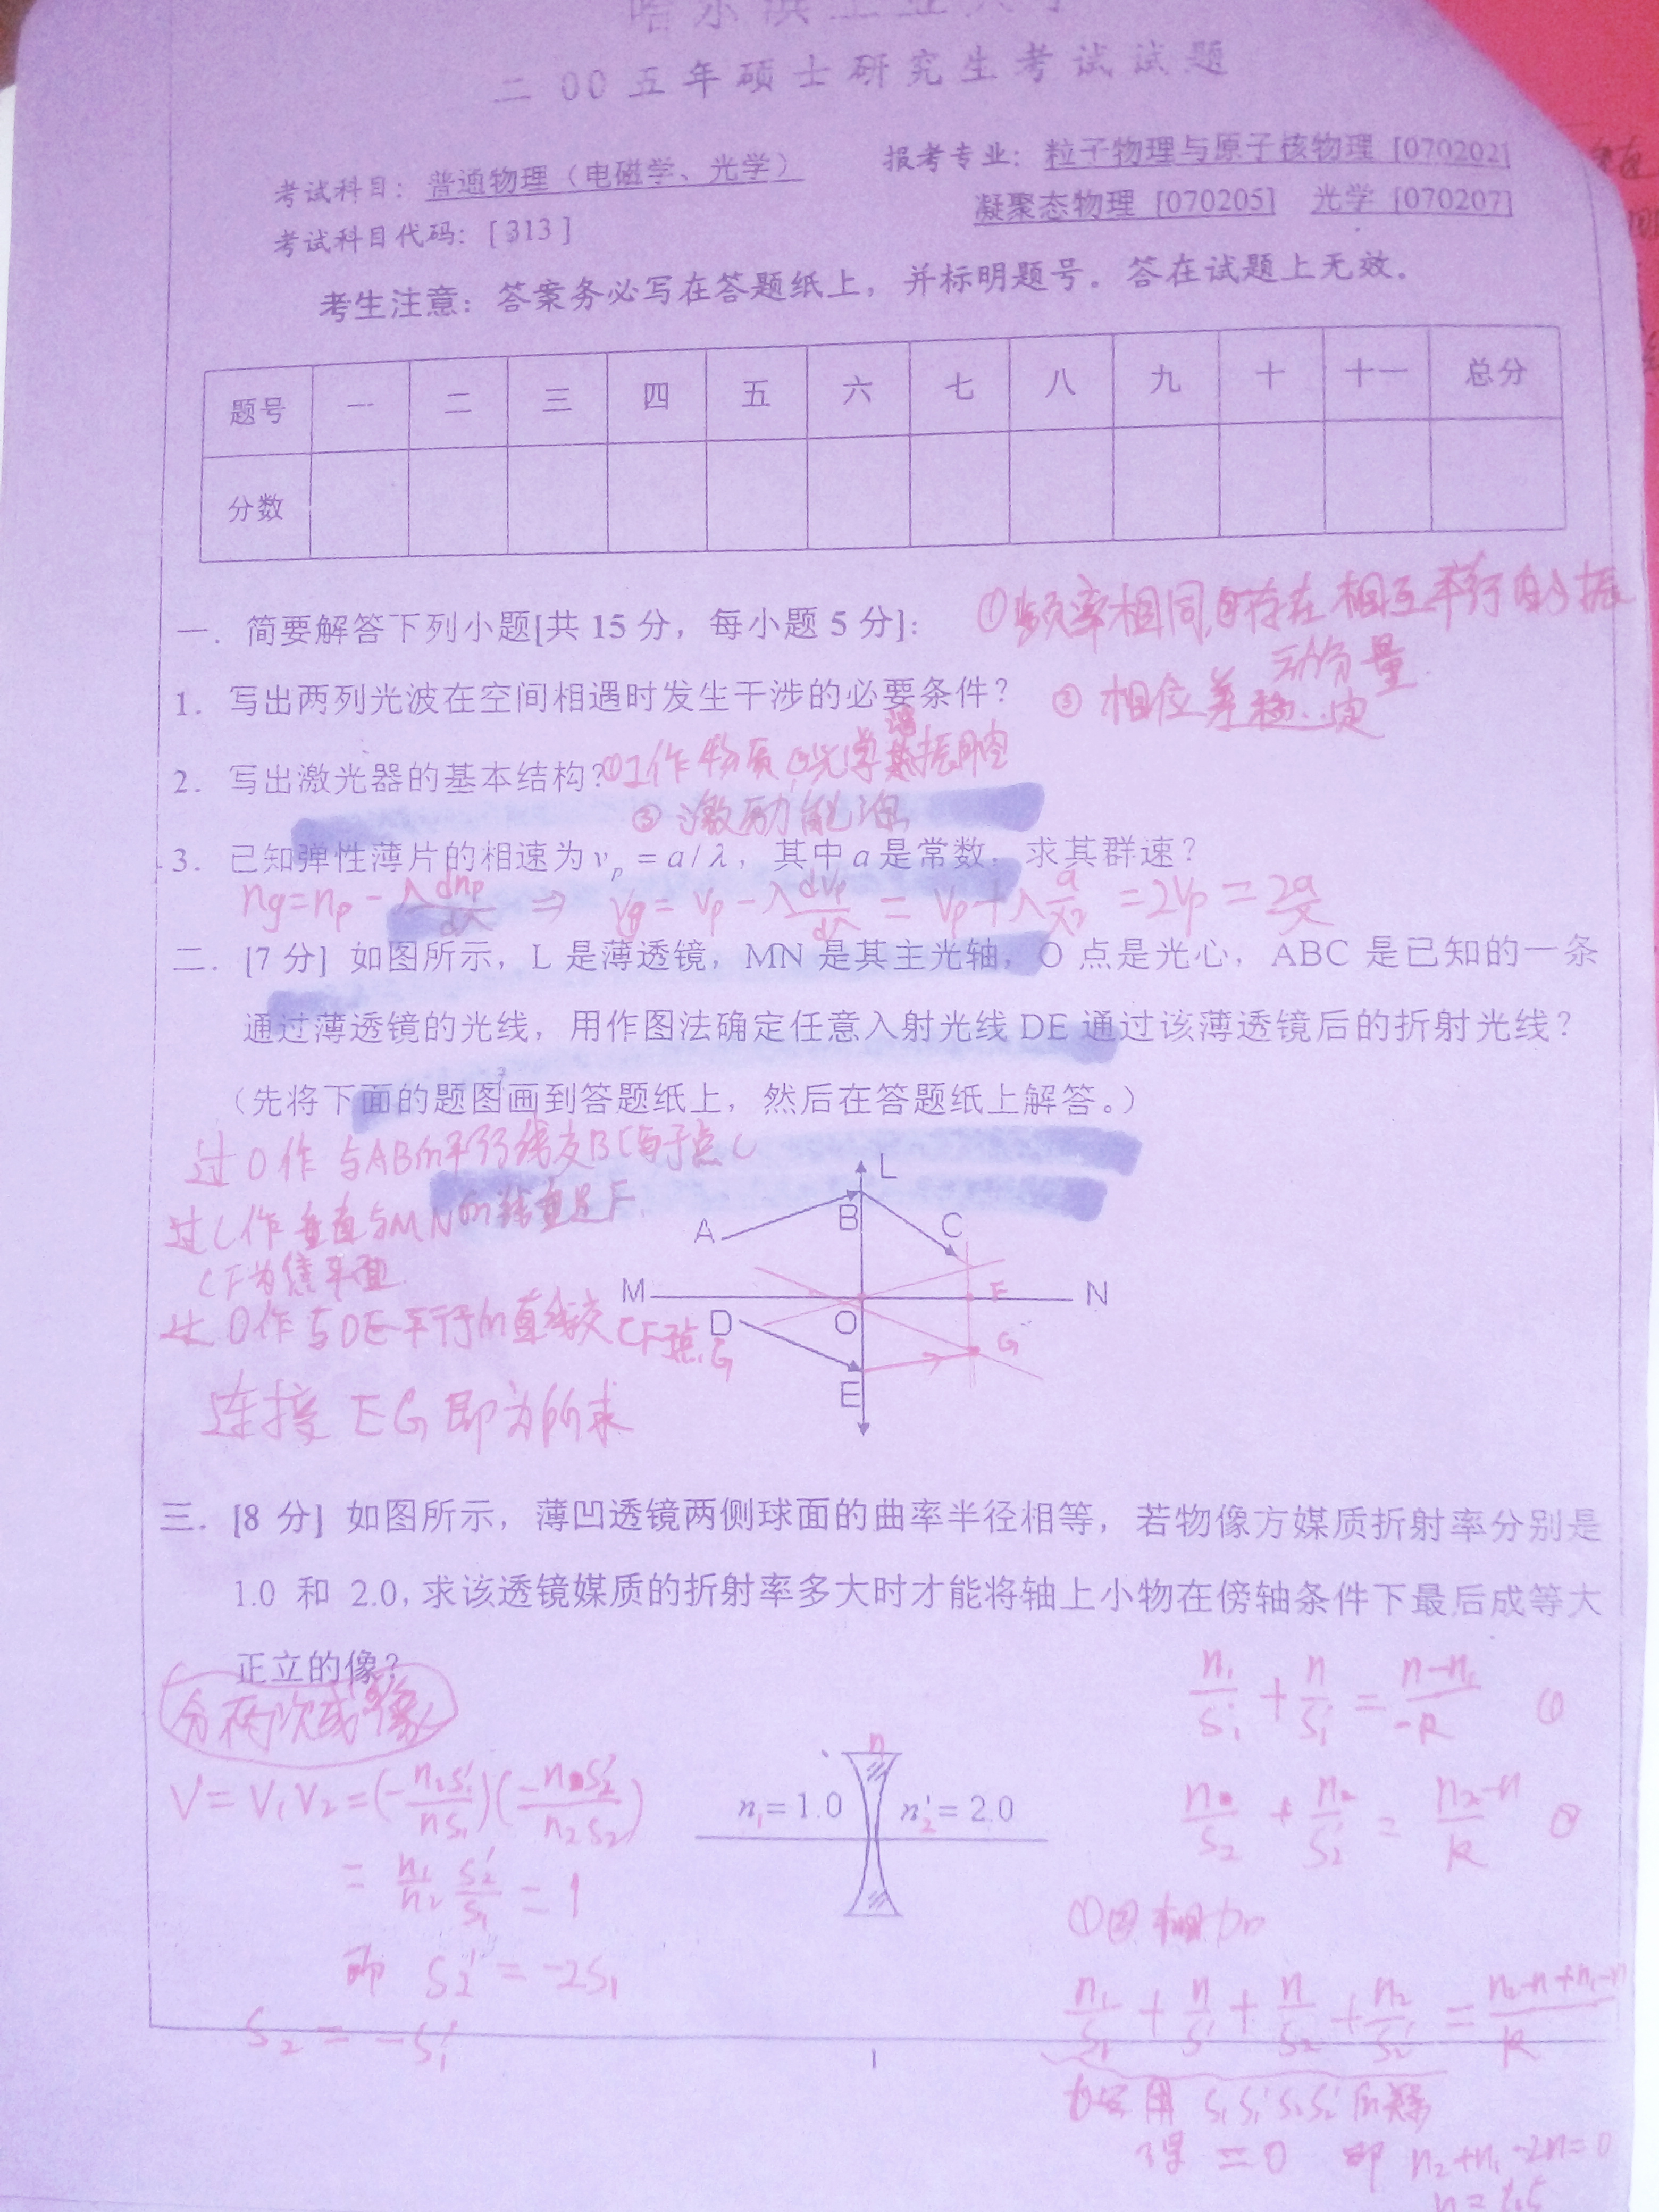 哈尔滨工业大学
二00五年硕士研究生考试试题
考试科目：普通物理（电磁学、光学）
报考专业：粒子物理与原子核物理 [070202]
凝聚态物理 [070205] 光学 [070207]
考试科目代码：[313]
考生注意：答案务必写在答题纸上，并标明题号。答在试题上无效。
题号 一 二 三 四 五 六 七 八 九 十 十一 总分
分数
一．简要解答下列小题[共 15 分，每小题 5 分]：
①频率相同 ②存在相互平行的振
动分量.
1．写出两列光波在空间相遇时发生干涉的必要条件？
③ 相位差稳定
2．写出激光器的基本结构？
①工作物质 ②光学谐振腔
③ 激励能源
3．已知弹性薄片的相速为 vp = a/λ，其中 a 是常数，求其群速？
ng=np - λ dnp/dλ ⇒ vg = vp - λ dvp/dλ = vp + λ a/λ² = 2vp = 2a/λ
二．[7 分] 如图所示，L 是薄透镜，MN 是其主光轴，O 点是光心，ABC 是已知的一条
通过薄透镜的光线，用作图法确定任意入射光线 DE 通过该薄透镜后的折射光线？
（先将下面的题图画到答题纸上，然后在答题纸上解答。）
过O作与AB的平行线交BC与于点C
过C作垂直与MN的线垂足F.
CF为焦平面.
过O作与DE平行的直线交CF于点G
连接 EG 即为所求
L
A
B
C
M
F
N
D
O
G
E
三．[8 分] 如图所示，薄凹透镜两侧球面的曲率半径相等，若物像方媒质折射率分别是
1.0 和 2.0，求该透镜媒质的折射率多大时才能将轴上小物在傍轴条件下最后成等大
正立的像？
分两次成像
n1/s1 + n/s1' = (n-n1)/-R ①
V = V1V2 = (-n1s1'/ns1)(-ns2'/n2s2)
n
n1 = 1.0
n2' = 2.0
n/s2 + n2/s2' = (n2-n)/R ②
= n1/n2 s2'/s1 = 1
①②相加
即 s2' = -2s1
n1/s1 + n/s1' + n/s2 + n2/s2' = (n2-n+n1-n)/R
s2 = -s1'
1
s1 s1' s2 s2'
得 = 0 即 n2+n1-2n=0
n=1.5